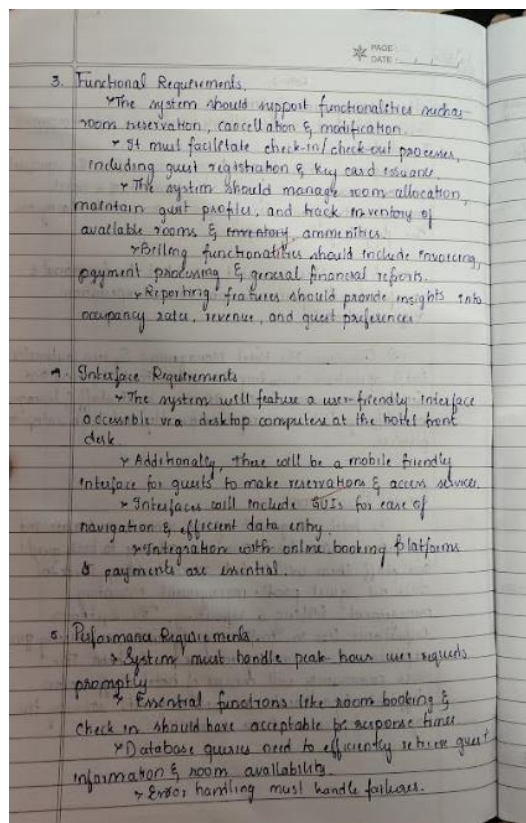 PAGE:
DATE:
3. Functional Requirements.
→ The system should support functionalities such as
room reservation, cancellation & modification.
→ It must facilitate check-in/check-out processes,
including guest registration & key card issuance.
→ The system should manage room allocation,
maintain guest profiles, and track inventory of
available rooms & inventory ammenities.
→ Billing functionalities should include invoicing,
payment processing & general financial reports.
→ Reporting features should provide insights into
occupancy rates, revenue, and guest preferences
4. Interface Requirements
→ The system will feature a user-friendly interface
accessible via desktop computers at the hotel front
desk
→ Additionally, there will be a mobile friendly
interface for guests to make reservations & access services.
→ Interfaces will include GUIs for ease of
navigation & efficient data entry.
→ Integration with online booking platforms
& payments are essential.
5. Performance Requirements.
→ System must handle peak hour user requests
promptly
→ Essential functions like room booking &
check in should have acceptable response times
→ Database queries need to efficiently retrieve guest
information & room availability.
→ Error handling must handle failures.